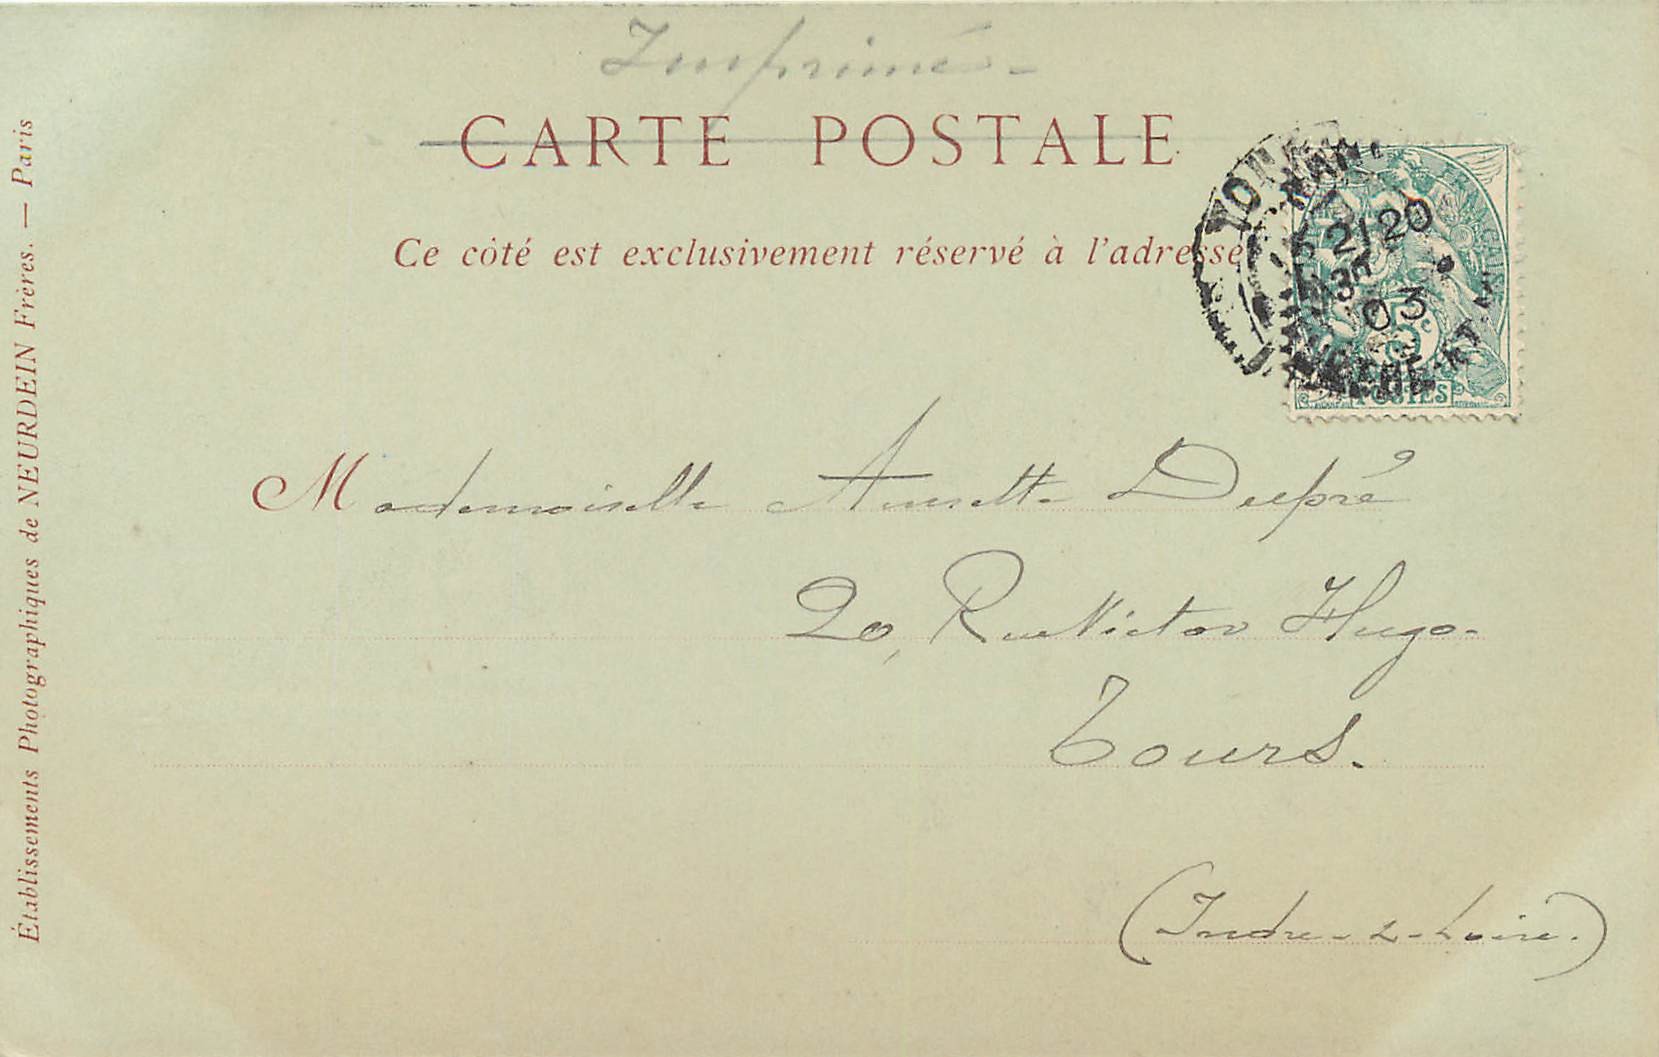 Imprimé -
CARTE POSTALE
Ce côté est exclusivement réservé à l'adresse
21 20
03
5c
POSTES
Mademoiselle Dupré
20, Rue Victor Hugo-
Tours.
(Indre-&-Loire.)
Établissements Photographiques de NEURDEIN Frères. — Paris